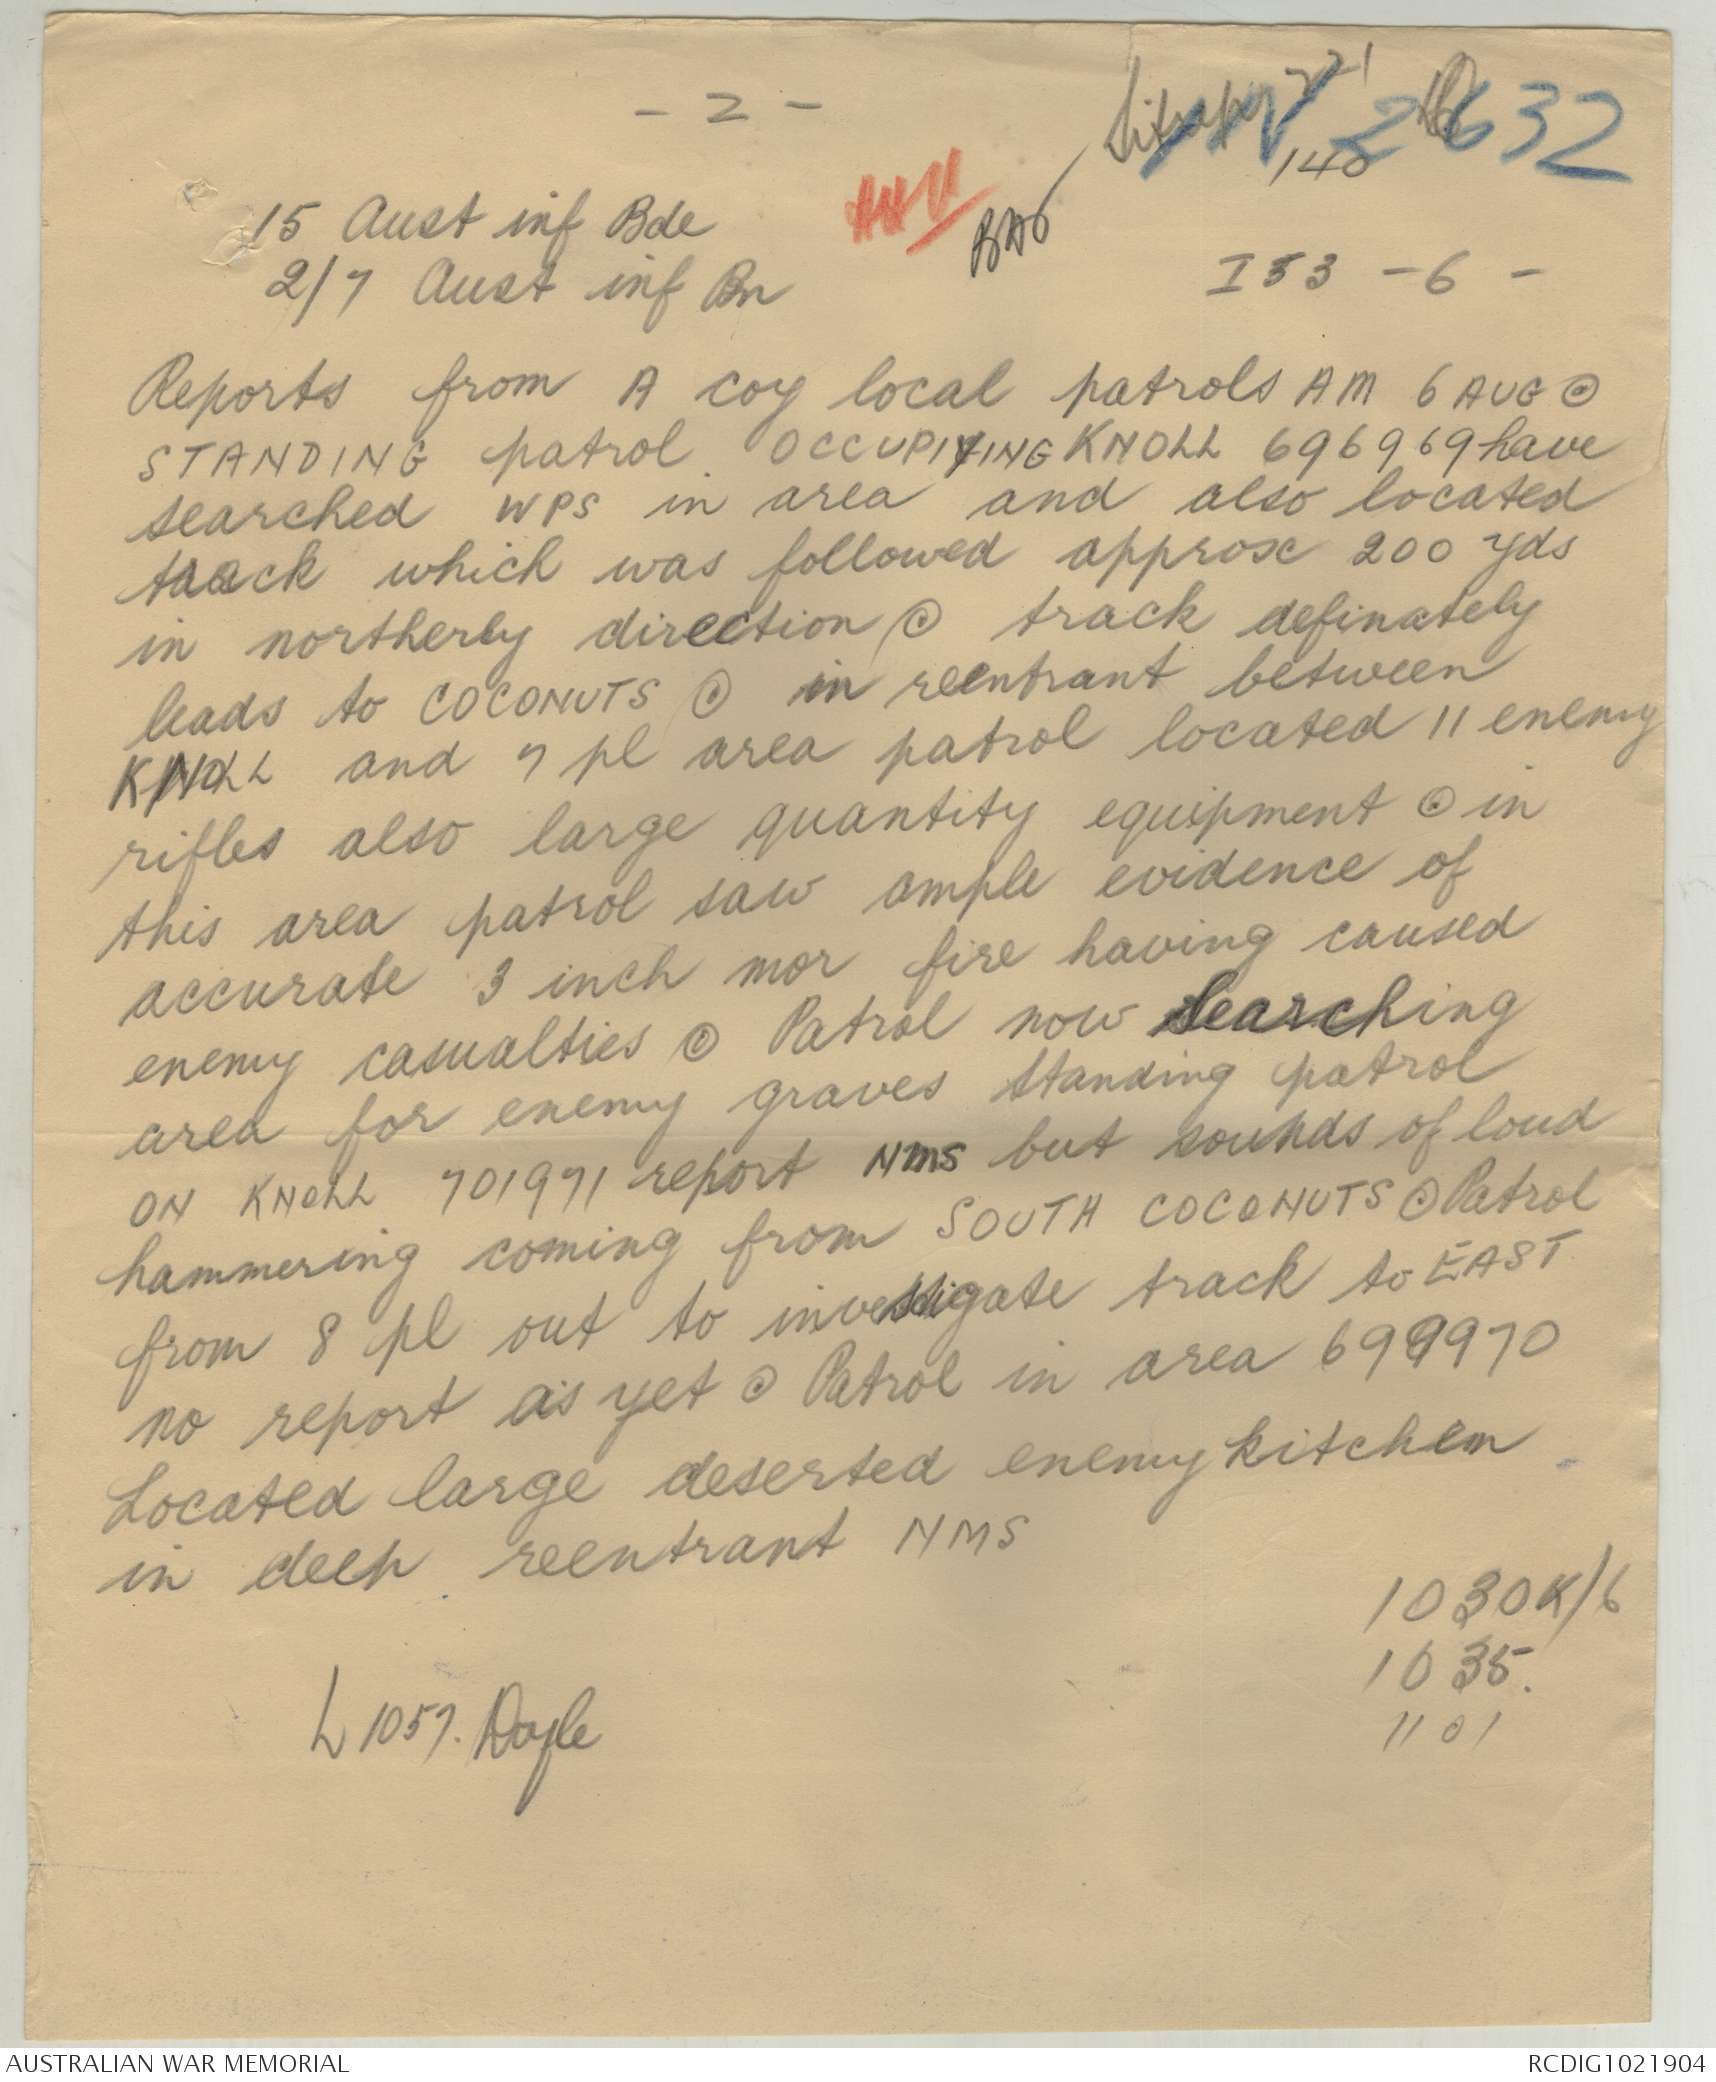 - 2 -
2 632
140
15 Aust inf Bde
2/7 Aust inf Bn
I 53 - 6 -
Reports from A coy local patrols AM 6 AUG ©
STANDING patrol OCCUPIYING KNOLL 696969 have
searched WPS in area and also located
track which was followed approx 200 yds
in northerly direction © track definately
leads to COCONUTS © in reentrant between
KNOLL and 7 pl area patrol located 11 enemy
rifles also large quantity equipment © in
this area patrol saw ample evidence of
accurate 3 inch mor fire having caused
enemy casualties © Patrol now searching
area for enemy graves standing patrol
ON KNOLL 701971 report NMS but sounds of loud
hammering coming from SOUTH COCONUTS © Patrol
from 8 pl out to investigate track to EAST
no report as yet © Patrol in area 699970
Located large deserted enemy kitchen
in deep reentrant NMS
1030K/6
1035.
1101
L 1057. Doyle
AUSTRALIAN WAR MEMORIAL
RCDIG1021904